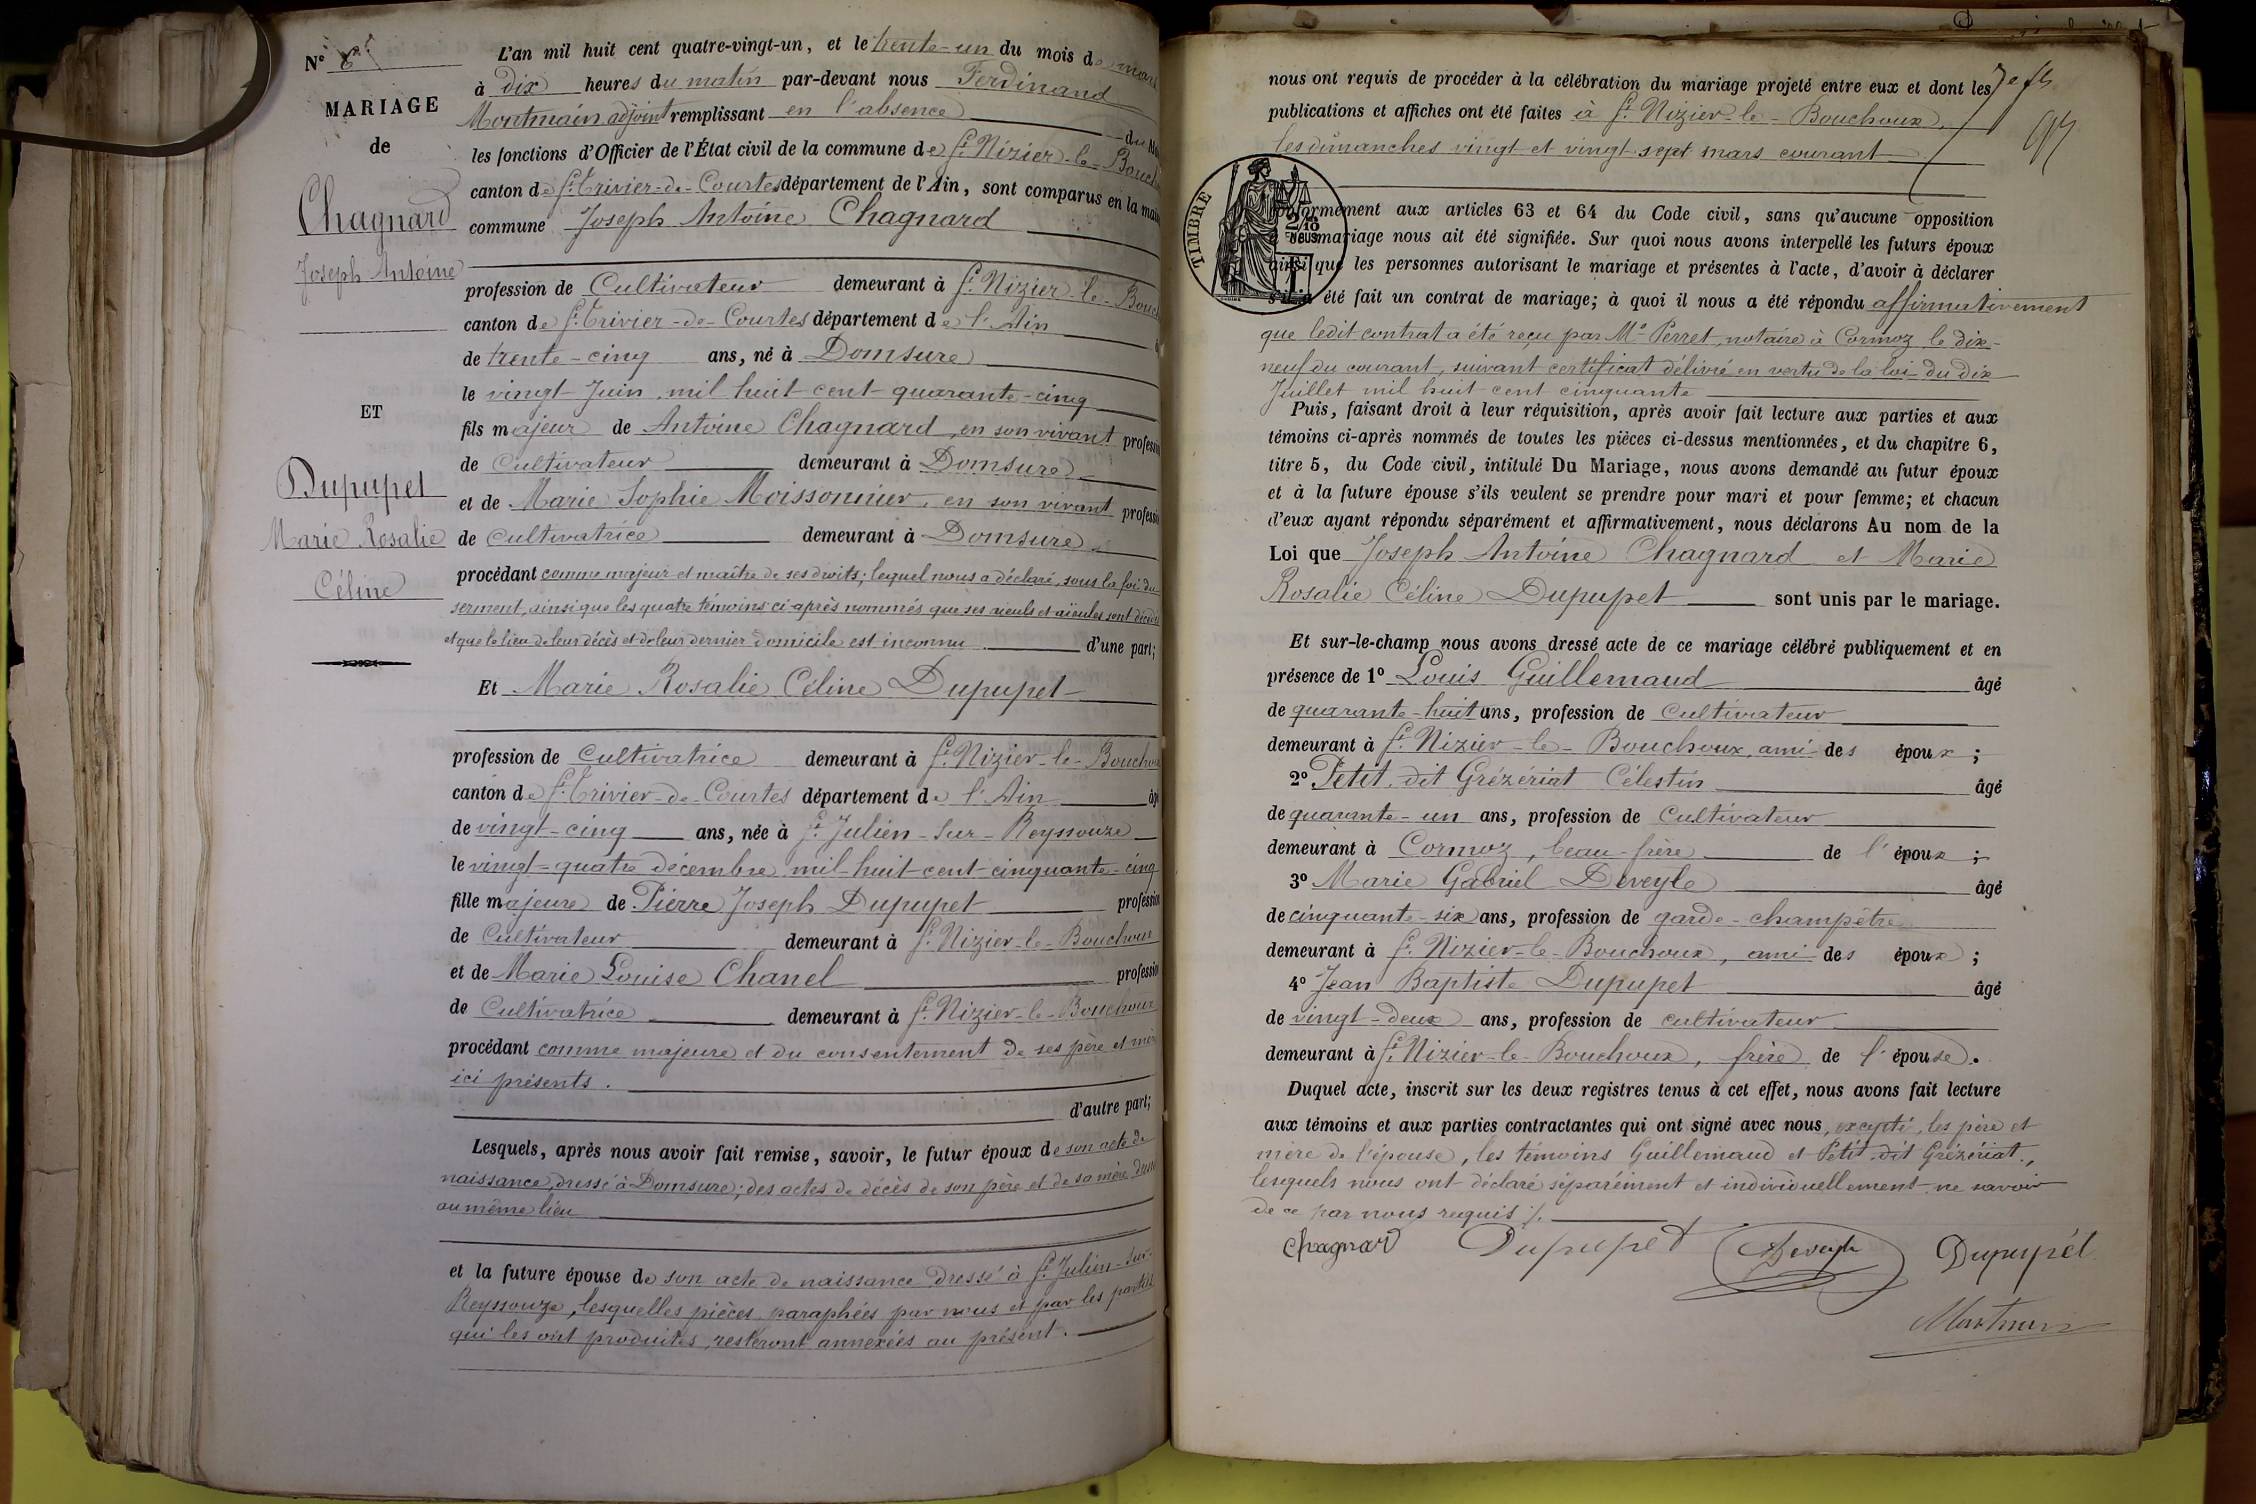 N°
MARIAGE
de
Chagnard
Joseph Antoine
ET
Dupupet
Marie Rosalie
Céline
L'an mil huit cent quatre-vingt-un, et le trente-un du mois de mars
à dix heures du matin par-devant nous Ferdinand
Montmain adjoint remplissant en l'absence du
les fonctions d'Officier de l'État civil de la commune de St Nizier-le-Bouch
canton de St Trivier-de-Courtes département de l'Ain, sont comparus en la
commune Joseph Antoine Chagnard
profession de Cultivateur demeurant à St Nizier-le-Bouch
canton de St Trivier-de-Courtes département de l'Ain
de trente-cinq ans, né à Domsure
le vingt Juin mil huit cent quarante-cinq
fils majeur de Antoine Chagnard, en son vivant profession
de Cultivateur demeurant à Domsure
et de Marie Sophie Moissonnier, en son vivant profession
de Cultivatrice demeurant à Domsure
procédant comme majeur et maître de ses droits; lequel nous a déclaré, sous la foi du
serment, ainsi que les quatre témoins ci-après nommés que ses aïeuls et aïeules sont décédés
et que le lieu de leur décès et de leur dernier domicile est inconnu d'une part;
Et Marie Rosalie Céline Dupupet
profession de Cultivatrice demeurant à St Nizier-le-Bouchoux
canton de St Trivier-de-Courtes département de l'Ain âgé
de vingt-cinq ans, née à St Julien-sur-Reyssouze
le vingt-quatre décembre mil huit cent cinquante-cinq
fille majeure de Pierre Joseph Dupupet profession
de Cultivateur demeurant à St Nizier-le-Bouchoux
et de Marie Louise Chanel profession
de Cultivatrice demeurant à St Nizier-le-Bouchoux
procédant comme majeure et du consentement de ses père et mère
ici présents.
d'autre part;
Lesquels, après nous avoir fait remise, savoir, le futur époux de son acte de
naissance, dressé à Domsure; des actes de décès de son père et de sa mère
au même lieu
et la future épouse de son acte de naissance dressé à St Julien-sur-
Reyssouze, lesquelles pièces paraphées par nous et par les parties
qui les ont produites, resteront annexées au présent.
nous ont requis de procéder à la célébration du mariage projeté entre eux et dont les
publications et affiches ont été faites à St Nizier-le-Bouchoux,
les dimanches vingt et vingt-sept mars courant
TIMBRE
conformément aux articles 63 et 64 du Code civil, sans qu'aucune opposition
mariage nous ait été signifiée. Sur quoi nous avons interpellé les futurs époux
ainsi que les personnes autorisant le mariage et présentes à l'acte, d'avoir à déclarer
s'il a été fait un contrat de mariage; à quoi il nous a été répondu affirmativement
que ledit contrat a été reçu par Me Perret, notaire à Cormoz le dix-
neuf du courant, suivant certificat délivré en vertu de la loi du dix
Juillet mil huit cent cinquante
Puis, faisant droit à leur réquisition, après avoir fait lecture aux parties et aux
témoins ci-après nommés de toutes les pièces ci-dessus mentionnées, et du chapitre 6,
titre 5, du Code civil, intitulé Du Mariage, nous avons demandé au futur époux
et à la future épouse s'ils veulent se prendre pour mari et pour femme; et chacun
d'eux ayant répondu séparément et affirmativement, nous déclarons Au nom de la
Loi que Joseph Antoine Chagnard et Marie
Rosalie Céline Dupupet sont unis par le mariage.
Et sur-le-champ nous avons dressé acte de ce mariage célébré publiquement et en
présence de 1° Louis Guillemaud âgé
de quarante-huit ans, profession de Cultivateur
demeurant à St Nizier-le-Bouchoux, ami des époux;
2° Petit dit Grézériat Célestin âgé
de quarante-un ans, profession de Cultivateur
demeurant à Cormoz, beau-frère de l'époux;
3° Marie Gabriel Deveyle âgé
de cinquante-six ans, profession de garde-champêtre
demeurant à St Nizier-le-Bouchoux, ami des époux;
4° Jean Baptiste Dupupet âgé
de vingt-deux ans, profession de cultivateur
demeurant à St Nizier-le-Bouchoux, frère de l'épouse.
Duquel acte, inscrit sur les deux registres tenus à cet effet, nous avons fait lecture
aux témoins et aux parties contractantes qui ont signé avec nous, excepté, les père et
mère de l'épouse, les témoins Guillemaud et Petit dit Grézériat,
lesquels nous ont déclaré séparément et individuellement ne savoir
de ce par nous requis./.
Chagnard Dupupet Deveyle Dupupét
Montmain